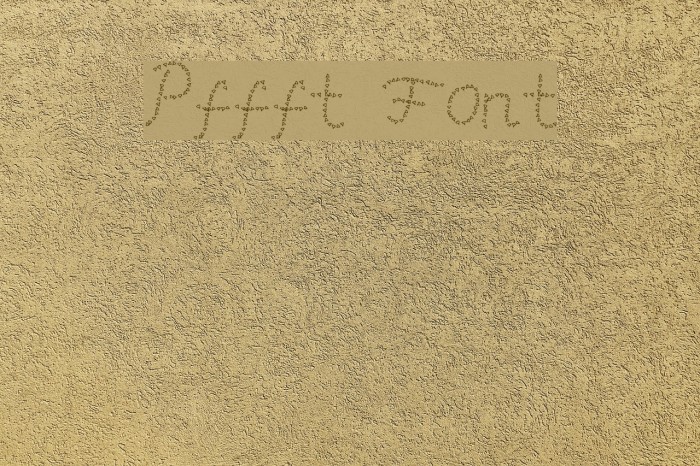 Pffft Font